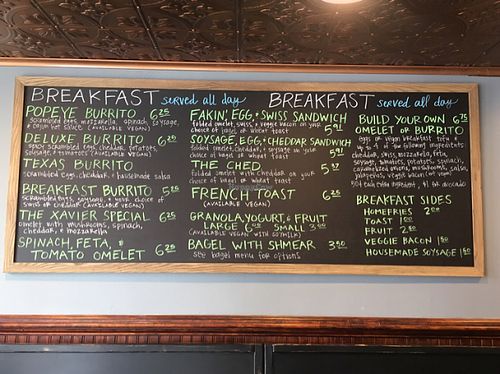 BREAKFAST served all day
POPEYE BURRITO 6.25
scrambled eggs, mozzarella, spinach, soysage,
& cajun hot sauce (AVAILABLE VEGAN)
DELUXE BURRITO 6.25
spicy scrambled eggs, cheddar, tomatoes,
soysage, & tomatoes (AVAILABLE VEGAN)
TEXAS BURRITO
scrambled eggs, cheddar, & homemade salsa
BREAKFAST BURRITO 5.25
scrambled eggs, soysage, & your choice of
swiss or cheddar
THE XAVIER SPECIAL 6.25
omelet with mushrooms, spinach,
cheddar, & mozzarella
SPINACH, FETA, &
TOMATO OMELET 6.25
BREAKFAST served all day
FAKIN', EGG, & SWISS SANDWICH
folded omelet, swiss, & veggie bacon on your
choice of bagel or wheat toast 5.91
SOYSAGE, EGG, & CHEDDAR SANDWICH
folded omelet, cheddar, & soysage on your
choice of bagel or wheat toast 5.91
THE CHED 5.37
folded omelet with cheddar on your
choice of bagel or wheat toast
FRENCH TOAST 6.25
(AVAILABLE VEGAN)
GRANOLA, YOGURT, & FRUIT
LARGE 6.40 SMALL 3.40
(AVAILABLE VEGAN WITH SOYMILK)
BAGEL WITH SHMEAR 3.40
see bagel menu for options
BUILD YOUR OWN 6.75
OMELET OR BURRITO
eggs or vegan breakfast tofu &
up to 4 of the following ingredients:
cheddar, swiss, mozzarella, feta,
soysage, tomatoes, potatoes, spinach,
caramelized onions, mushrooms, salsa,
jalapeños, veggie bacon
50¢ each extra ingredient, $1 for avocado
BREAKFAST SIDES
HOMEFRIES 2.00
TOAST 1.00
FRUIT 2.80
VEGGIE BACON 1.80
HOUSEMADE SOYSAGE 1.80